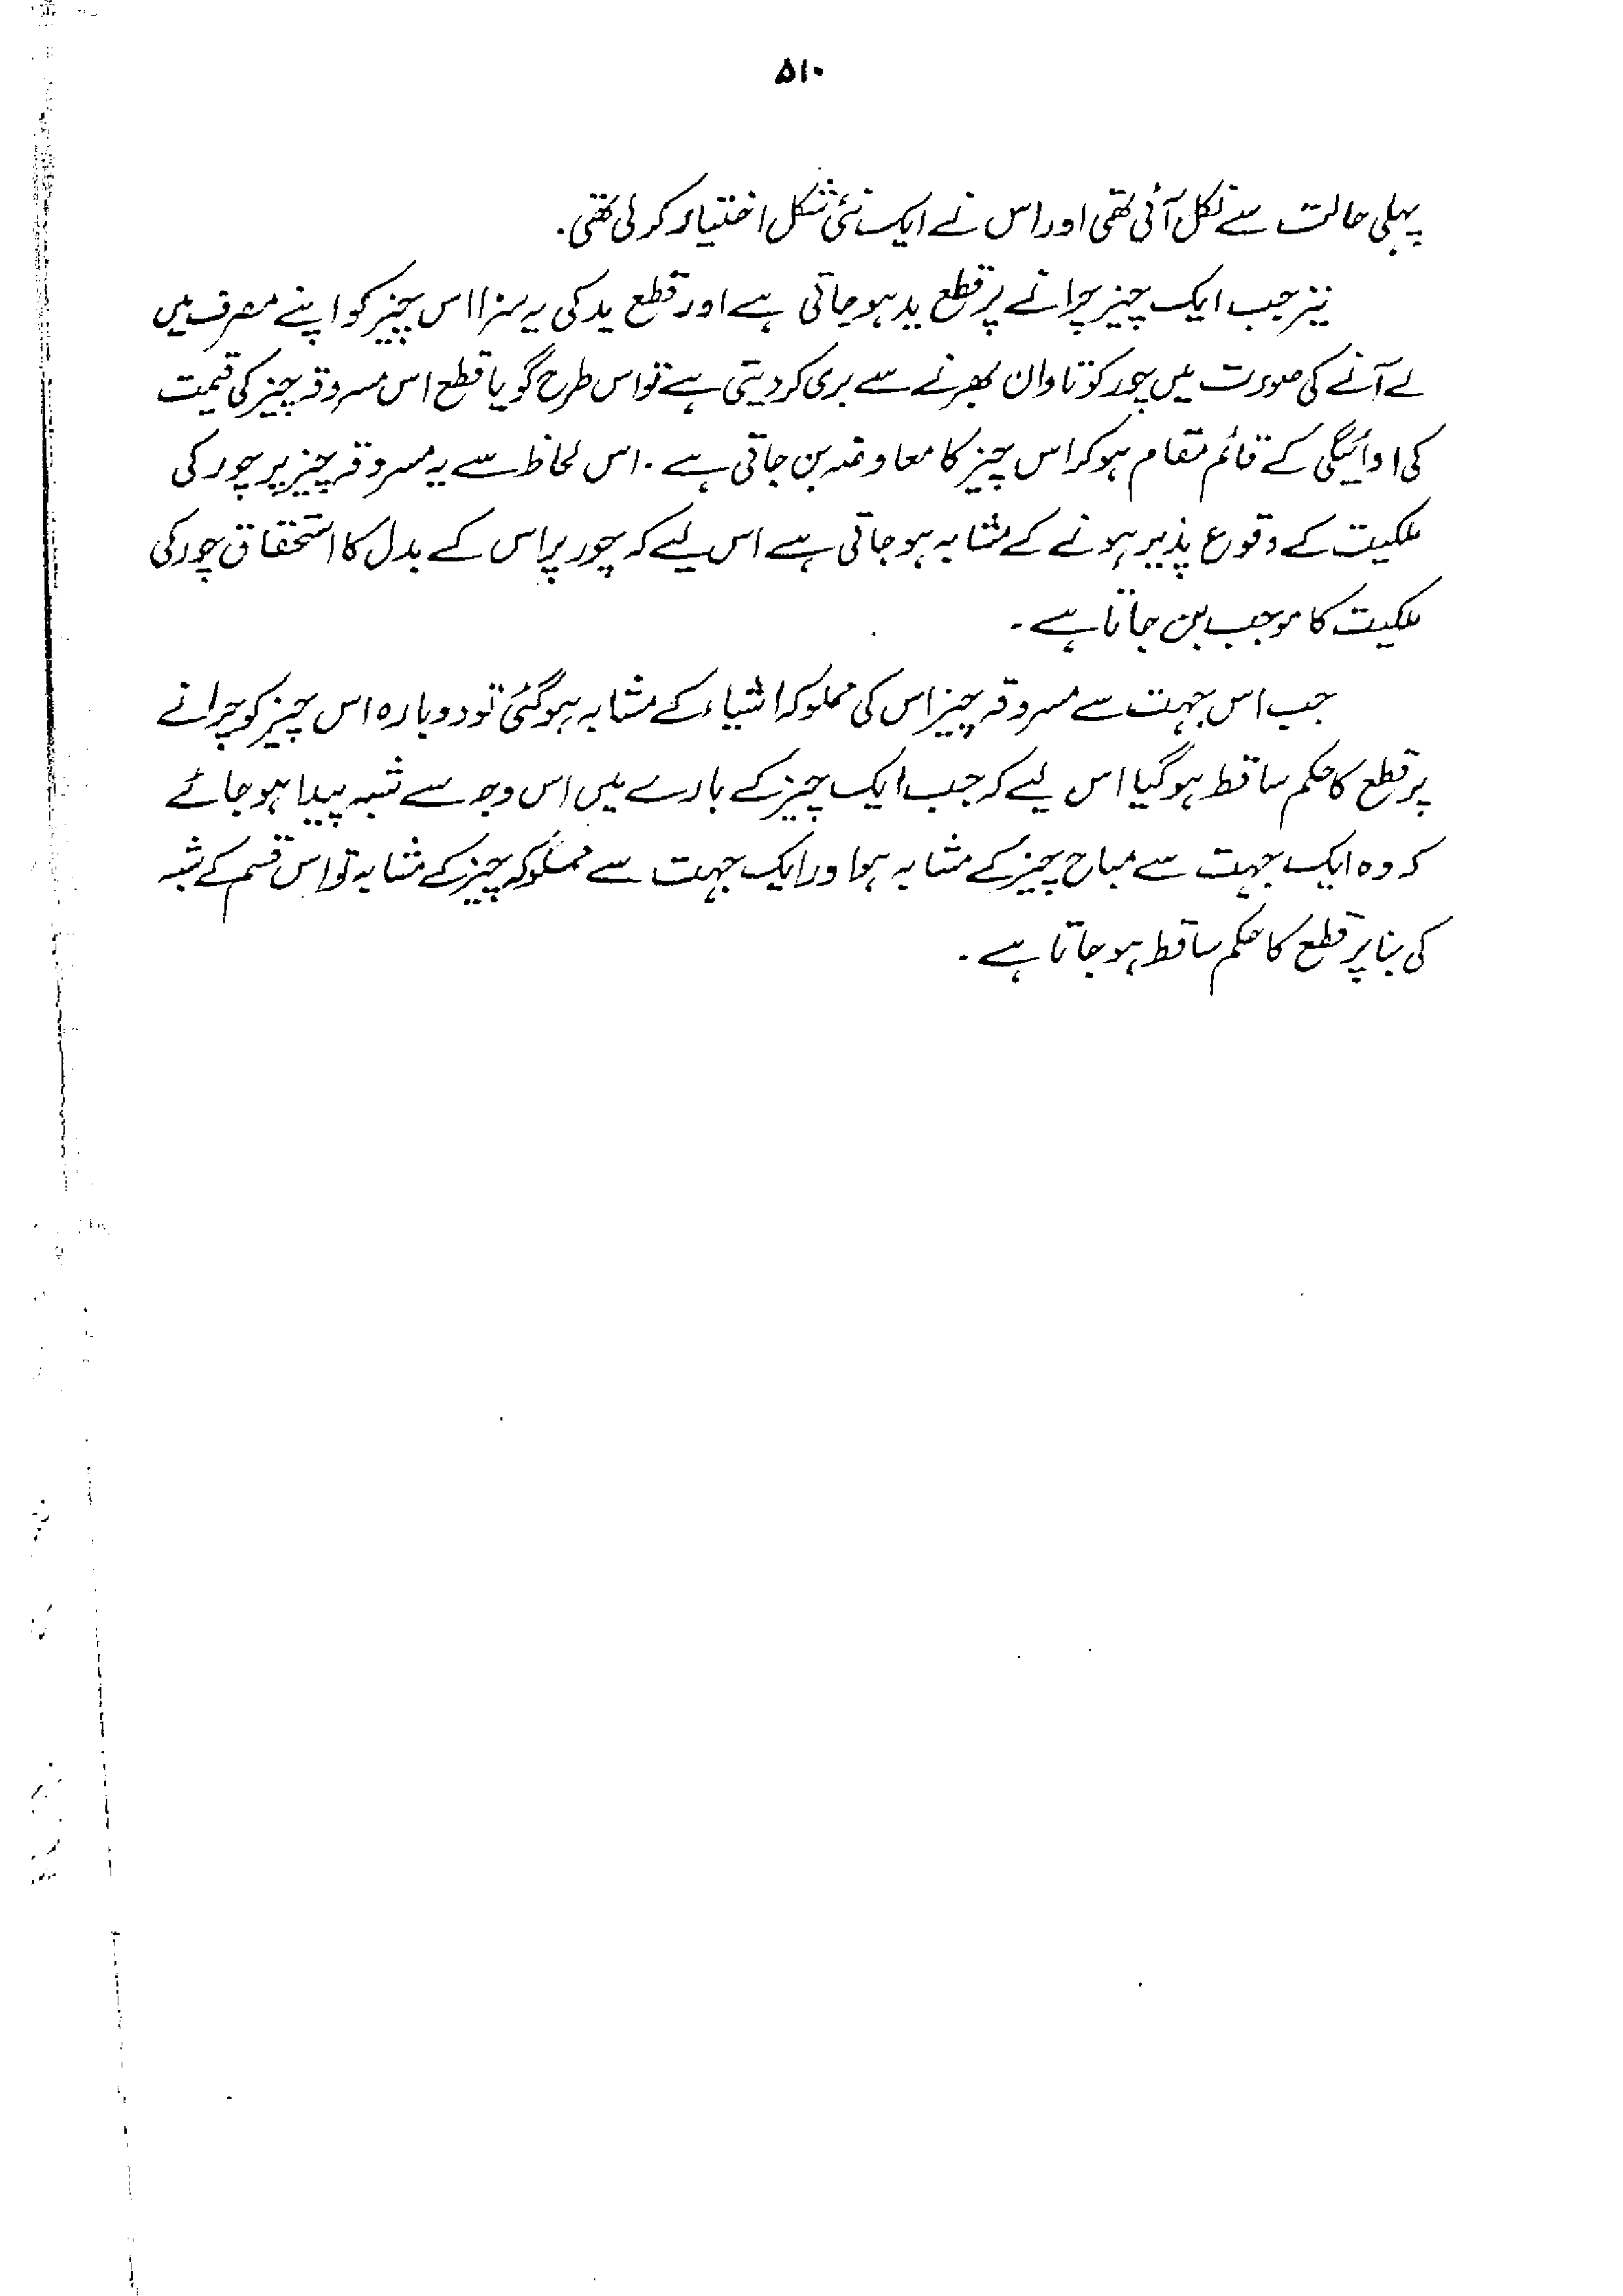 ۵۱۰
پہلی حالت سے نکل آئی تھی اور اس نے ایک نئی شکل اختیار کر لی تھی.
نیز جب ایک چیز چرانے پر قطع ید ہو جاتی ہے اور قطع ید کی یہ سزا اس چیز کو اپنے مصرف میں
لے آنے کی صورت میں چور کو تاوان بھرنے سے بری کر دیتی ہے تو اس طرح گویا قطع اس مسروقہ چیز کی قیمت
کی ادائیگی کے قائم مقام ہو کر اس چیز کا معاوضہ بن جاتی ہے۔ اس لحاظ سے یہ مسروقہ چیز پر چور کی
ملکیت کے وقوع پذیر ہونے کے مشابہ ہو جاتی ہے اس لیے کہ چور پر اس کے بدل کا استحقاق چور کی
ملکیت کا موجب بن جاتا ہے۔
جب اس جہت سے مسروقہ چیز اس کی مملوکہ اشیاء کے مشابہ ہو گئی تو دوبارہ اس چیز کو چرانے
پر قطع کا حکم ساقط ہو گیا اس لیے کہ جب ایک چیز کے بارے میں اس وجہ سے شبہ پیدا ہو جائے
کہ وہ ایک جہت سے مباح چیز کے مشابہ ہو اور ایک جہت سے مملوکہ چیز کے مشابہ تو اس قسم کے شبہ
کی بنا پر قطع کا حکم ساقط ہو جاتا ہے۔